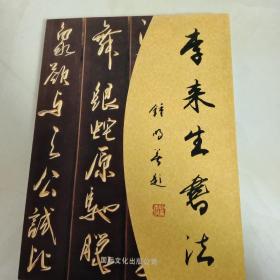 李来生书法
鍾明善题
舞银蛇原驰腊
象欲与天公試比
国际文化出版公司